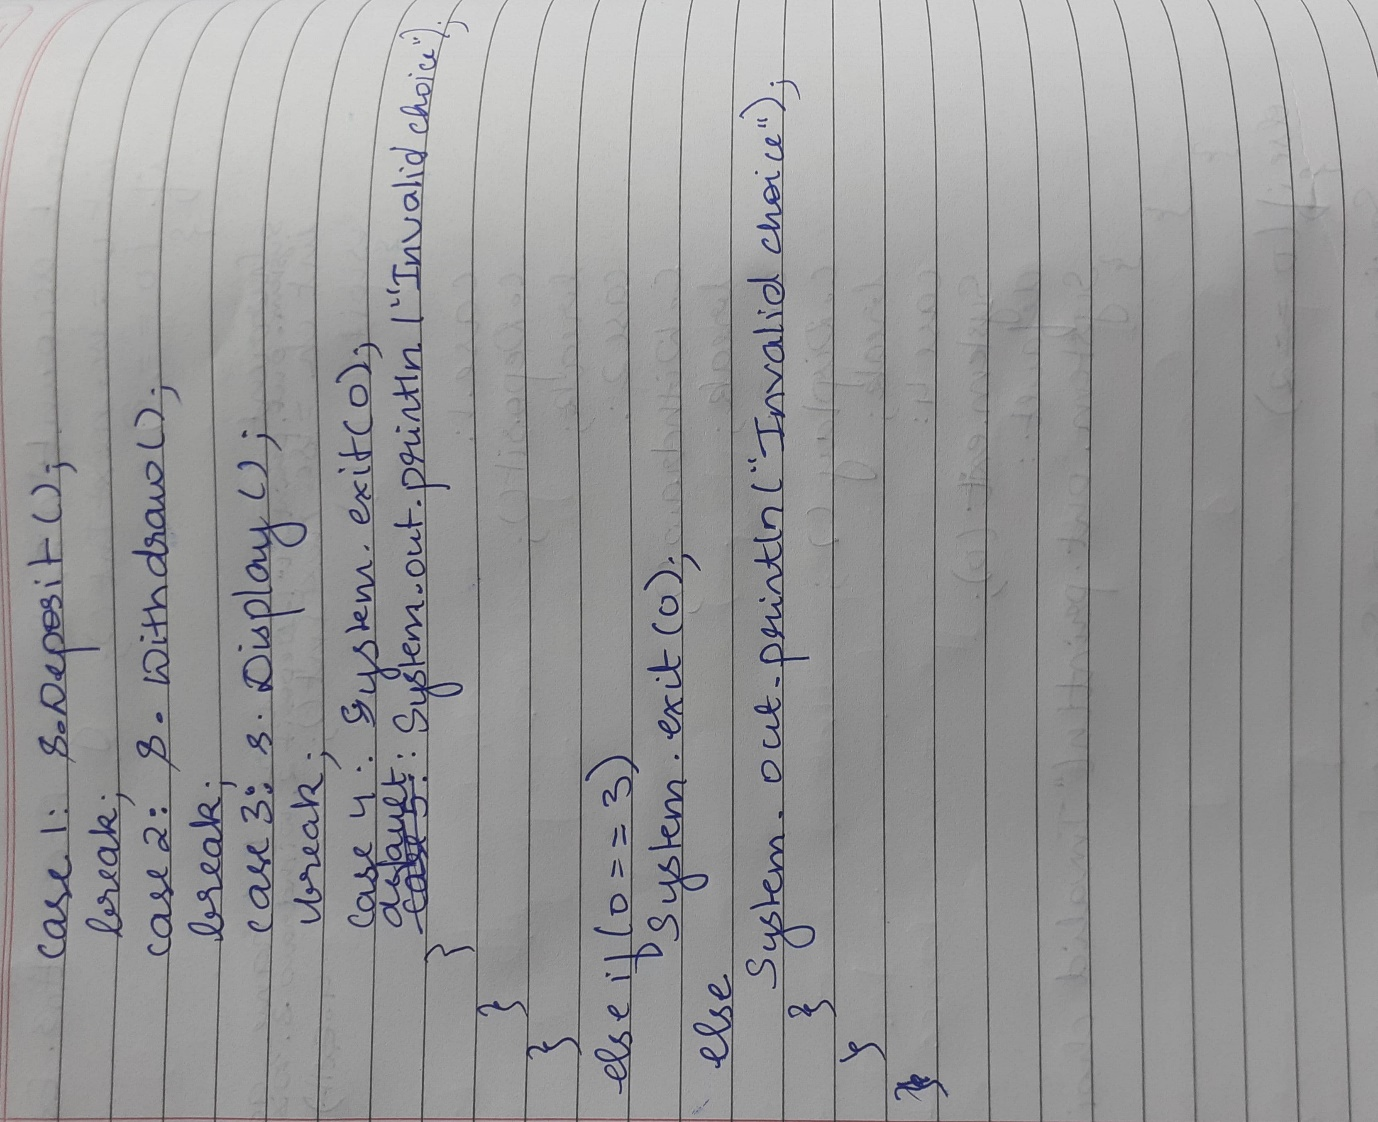 case 1: s.Deposit();
break;
case 2: s. Withdraw();
break;
case 3: s. Display();
break;
case 4: System. exit(0);
default: System.out.println("Invalid choice");
}
}
}
else if(o==3)
System.exit(0);
else
System.out.println("Invalid choice");
}
}
}